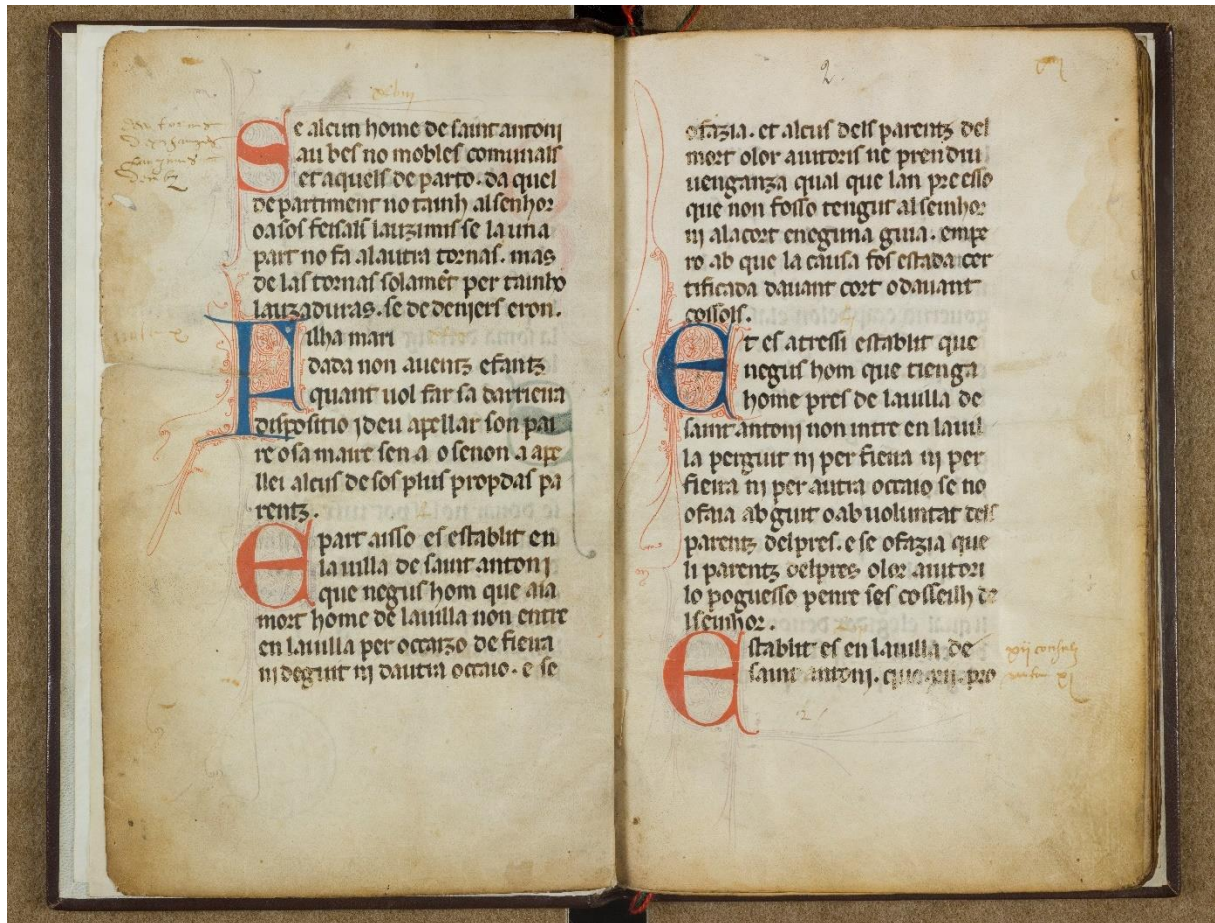 Se alcun home de saint antoni
au bes no mobles comunals
et aquels de parto. da quel
de partiment no tainh al senhor
o a sos feisals lauzimis se la una
part no fa alautra tornas. mas
de las tornas solamēt per tainho
lauzaduras. se de deniers eron.
Filha mari
dada non auentz efantz
quant uol far sa darrieira
dispositio i deu apellar son pai
re o sa maire sen a o se non a ape
llei alcus de sos plus propdas pa
rentz.
E part aisso es establit en
la uilla de saint antoni
que negus hom que aia
mort home de la uilla non entre
en la uilla per occaizo de fieira
ni de guit ni dautra occaio. e se
2.
o fazia. et alcus dels parentz del
mort o lor auitoris ne prendiu
uenganza qual que lan preesso
que non fosso tengut al seinhor
ni ala cort e neguna guia. empe
ro ab que la causa fos estada cer
tificada dauant cort o dauant
cossols.
Et es atressi establit que
negus hom que tienga
home pres de la uilla de
saint antoni non intre en la uil
la per guit ni per fieira ni per
fieira ni per autra occaio se no
o faia ab guit o ab uoluntat dels
parentz del pres. e se o fazia que
li parentz del pres o lor auitori
lo poguesso penre ses cosseilh de
l seinhor.
Establit es en la uilla de
saint antoni. que xii. pro
xii consulz